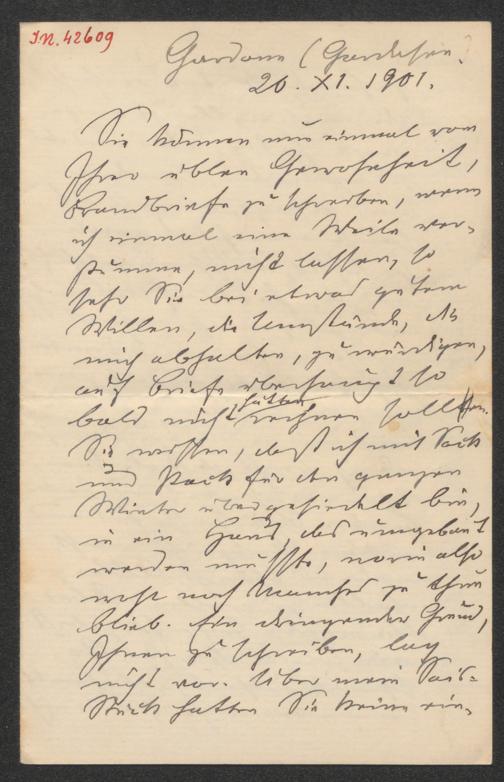 IN. 42609
Gardone (Gardasee.
20. XI. 1901.
Sie können nun einmal von
Ihrer üblen Gewohnheit,
Brandbriefe zu schreiben, wenn
ich einmal eine Weile ver-
stumme, nicht lassen, so
sehr Sie bei etwas gutem
Willen, die Umstände, die
mich abhalten, zu würdigen,
auf Briefe überhaupt so
bald nicht hätten rechnen sollen.
Sie wissen, daß ich mit Sack
und Pack für den ganzen
Winter übergesiedelt bin,
in ein Haus, das umgebaut
werden mußte, worin also
noch Mancherlei zu thun
blieb. Ein dringender Grund,
Ihnen zu schreiben, lag
nicht vor. Über mein
Stück hatten Sie keine ein-